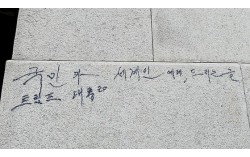 국민과 세계인에게, 드레스를
트럼프 대통령